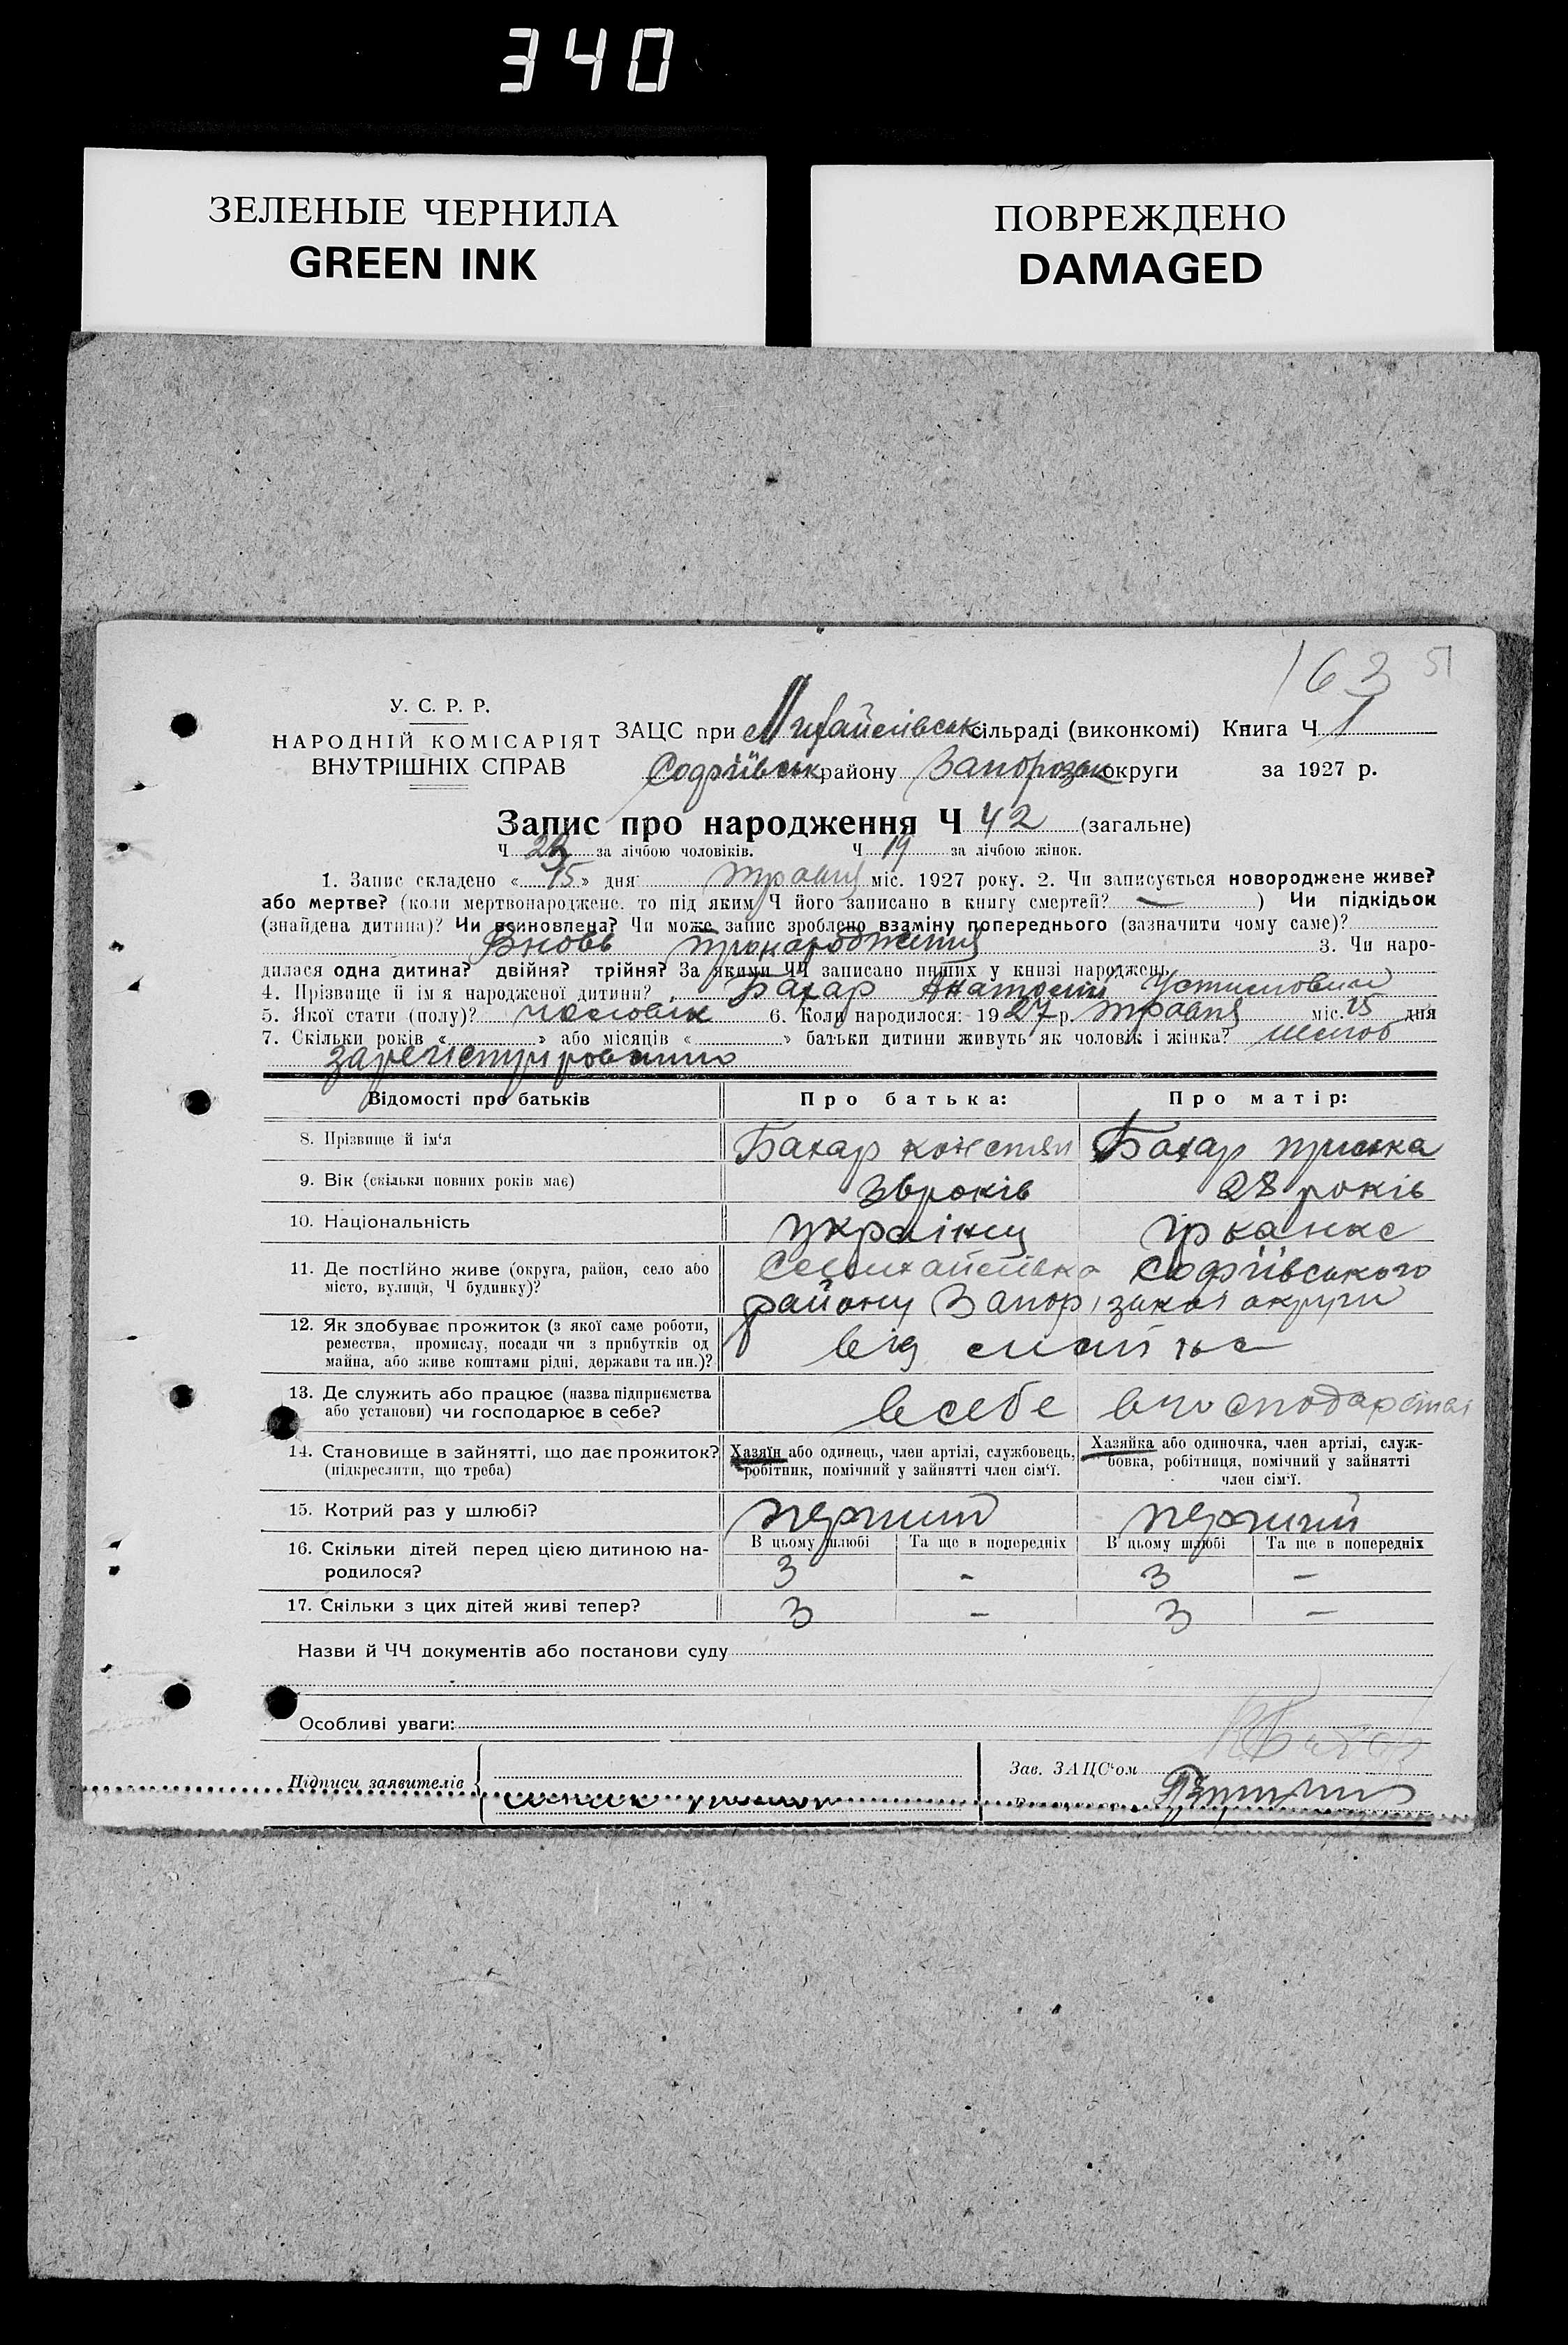 340
ЗЕЛЕНЫЕ ЧЕРНИЛА
GREEN INK
ПОВРЕЖДЕНО
DAMAGED
163 51
У. С. Р. Р.
НАРОДНІЙ КОМІСАРІЯТ
ВНУТРІШНІХ СПРАВ
ЗАЦС при Михайлівськ сільраді (виконкомі) Книга Ч 1
Софіївськ району Запорозьк округи за 1927 р.
Запис про народження Ч 42 (загальне)
Ч 23 за лічбою чоловіків. Ч 19 за лічбою жінок.
1. Запис складено « 15 » дня травня міс. 1927 року. 2. Чи записується новороджене живе?
або мертве? (коли мертвонароджене, то під яким Ч його записано в книгу смертей? — ) Чи підкідьок
(знайдена дитина)? Чи всиновлена? Чи може запис зроблено взаміну попереднього (зазначити чому саме)?
Вновь 3. Чи наро-
дилася одна дитина? двійня? трійня? За якими ЧЧ записано инших у книзі народжень
4. Прізвище й ім'я народженої дитини? Бахар Анатолій
5. Якої стати (полу)? чоловік 6. Коли народилося: 1927 р. травня міс. 15 дня
7. Скільки років « » або місяців « » батьки дитини живуть як чоловік і жінка? шлюб
зарегістрировано
Відомості про батьків
Про батька:
Про матір:
8. Прізвище й ім'я
Бахар
Бахар
9. Вік (скільки повних років має)
36 років
28 років
10. Національність
українец
11. Де постійно живе (округа, район, село або
місто, вулиця, Ч будинку)?
Михайлівка Софіївського
району Запорізької округи
12. Як здобуває прожиток (з якої саме роботи,
ремества, промислу, посади чи з прибутків од
майна, або живе коштами рідні, держави та ин.)?
від
13. Де служить або працює (назва підприємства
або установи) чи господарює в себе?
в себе в господарстві
14. Становище в зайнятті, що дає прожиток?
(підкреслити, що треба)
Хазяїн або одинець, член артілі, службовець,
робітник, помічний у зайнятті член сім'ї.
Хазяйка або одиночка, член артілі, служ-
бовка, робітниця, помічний у зайнятті
член сім'ї.
15. Котрий раз у шлюбі?
перший
перший
16. Скільки дітей перед цією дитиною на-
родилося?
В цьому шлюбі Та ще в попередніх В цьому шлюбі Та ще в попередніх
3 - 3 -
17. Скільки з цих дітей живі тепер?
3 - 3 -
Назви й ЧЧ документів або постанови суду
Особливі уваги:
Підписи заявителів
Зав. ЗАЦС'ом